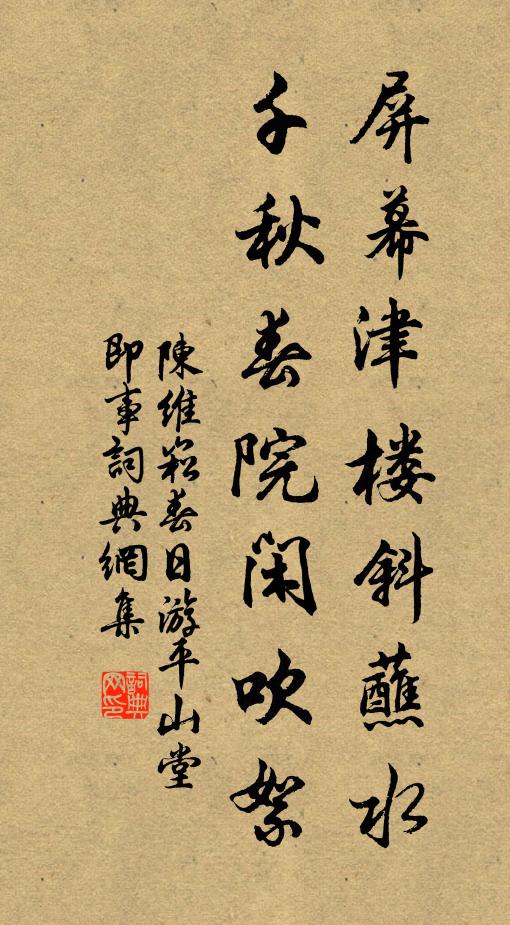 屏幕津楼斜蘸水
千秋春院闲吹絮
陳維崧春日游平山堂
即事詞典網集
詞典网印